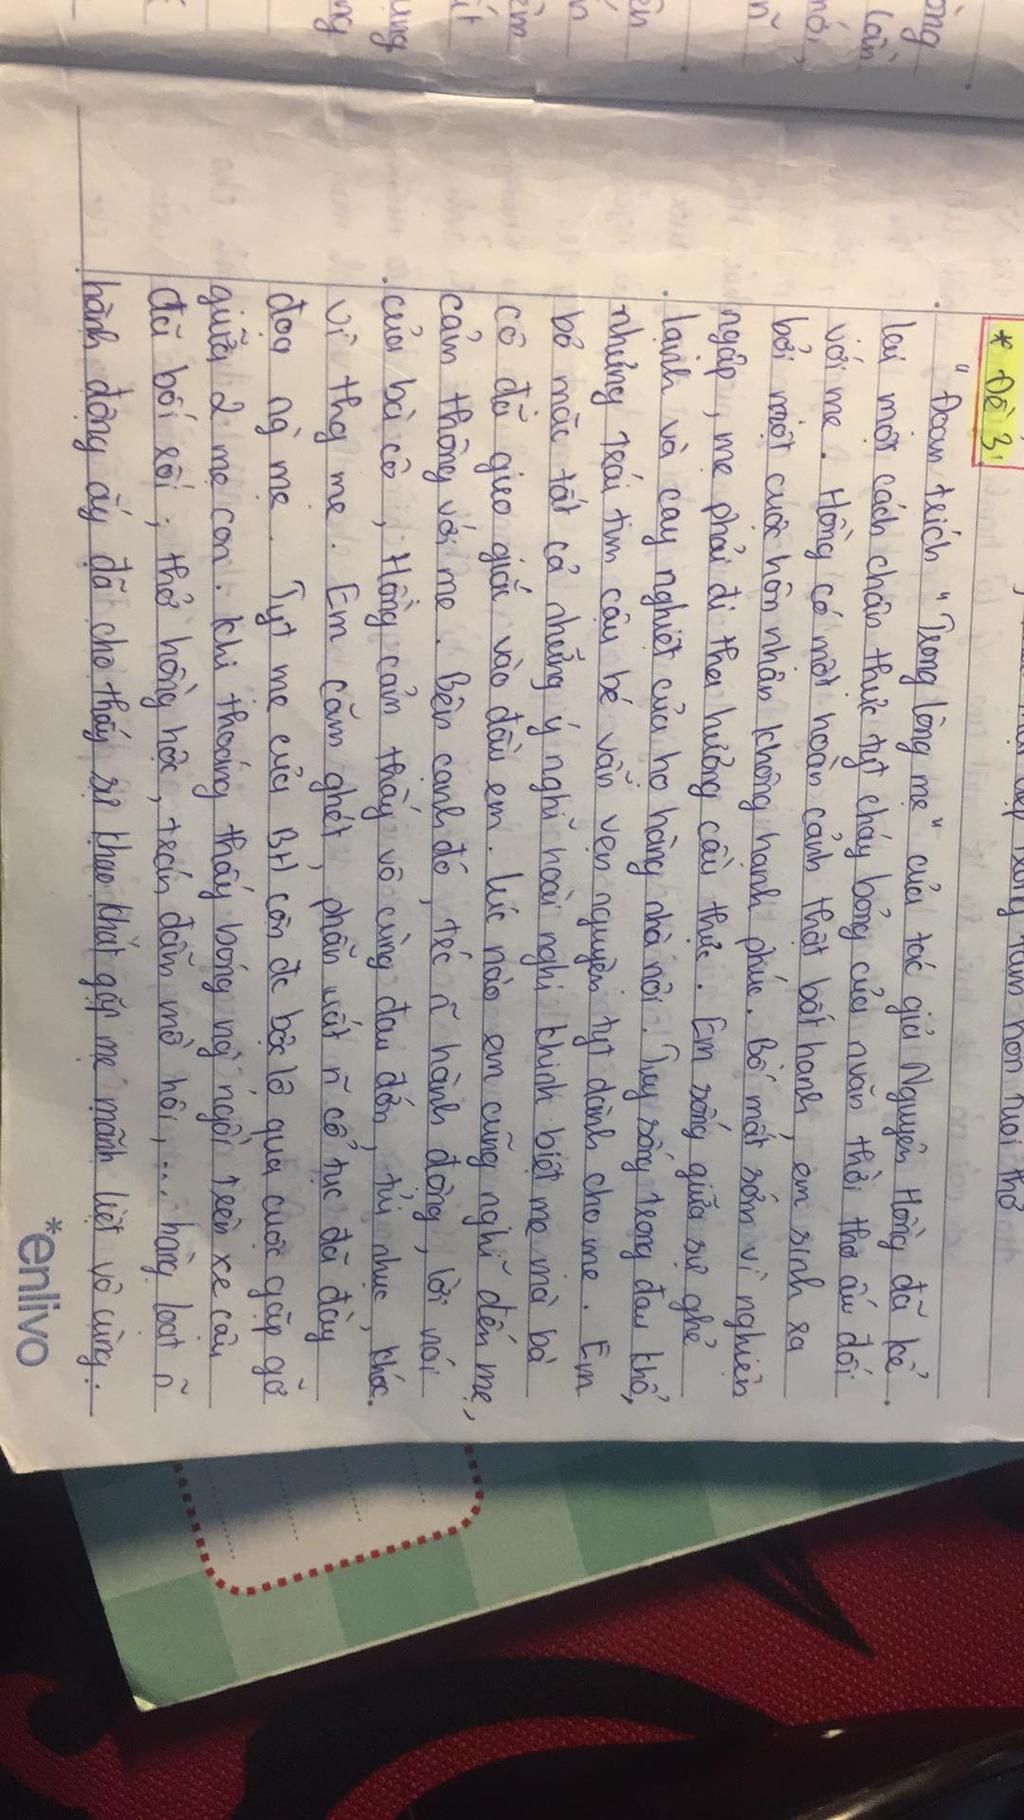 * Đề 3:
" Đoạn trích " Trong lòng mẹ " của tác giả Nguyên Hồng đã kể
lại một cách chân thực ty† cháy bỏng của nvăn thời thơ ấu đối
với mẹ. Hồng có một hoàn cảnh thật bất hạnh, em sinh ra
bởi một cuộc hôn nhân không hạnh phúc. Bố mất sớm vì nghiện
ngập, mẹ phải đi tha hương cầu thực. Em sống giữa sự ghẻ
lạnh và cay nghiệt của họ hàng nhà nội. Tuy sống trong đau khổ,
nhưng trái tim cậu bé vẫn vẹn nguyên ty† dành cho mẹ. Em
bỏ mặc tất cả những ý nghĩ hoài nghi khinh biệt mẹ mà bà
cô đã gieo giắc vào đầu em. Lúc nào em cũng nghĩ đến mẹ,
cảm thông với mẹ. Bên cạnh đó, trc ~ hành động, lời nói
của bà cô, Hồng cảm thấy vô cùng đau đớn, tủi nhục, khóc
vì thg mẹ. Em căm ghét, phẫn uất ~ cổ tục đã đày
đọa ng` mẹ. Ty† mẹ của BH còn đc bộc lộ qua cuộc gặp gỡ
giữa 2 mẹ con. Khi thoáng thấy bóng ng` ngồi trên xe
đã bối rối, thở hồng hộc, trán đẫm mồ hôi,... hàng loạt ~
hành động ấy đã cho thấy sự khao khát gặp mẹ mãnh liệt vô cùng.
*enlivo